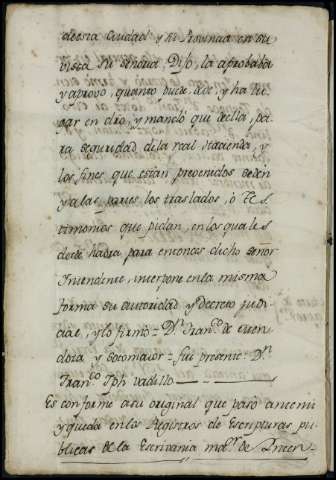 deesta Ciudad y su Provincia en su
vista su señoria, Dijo, la aprobaba
y aprovo, quanto puede, deve, y ha lu-
gar en dro, y mandó que della, pa-
ra seguridad dela real Hacienda, y
los fines que están prevenidos se den
y alas partes los traslados, ò tes-
timonios que pidan, en los quales
desde haora para entonces dicho señor
Yntendente, interpone en la misma
forma su autoridad y decreto judi-
cial, y lo firmó = Dn. Franco. de
y Sotomayor = fui presente = Dn.
Franco. Jph. Vadillo
Es conforme a su original que pasó ante mi
y queda en los Registros de Escripturas pu-
blicas de la Escrivania maor. de